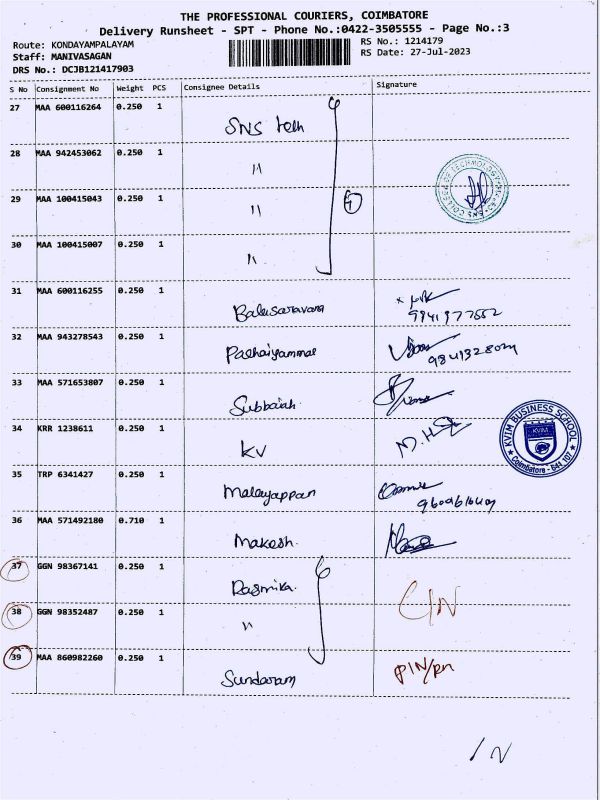 THE PROFESSIONAL COURIERS, COIMBATORE
Delivery Runsheet - SPT - Phone No.:0422-3505555 - Page No.:3
Route: KONDAYAMPALAYAM
RS No.: 1214179
Staff: MANIVASAGAN
RS Date: 27-Jul-2023
DRS No.: DCJB121417903
S No Consignment No Weight PCS Consignee Details Signature
27 MAA 600116264 0.250 1 SNS Tech
28 MAA 942453062 0.250 1 "
29 MAA 100415043 0.250 1 "
30 MAA 100415007 0.250 1 "
31 MAA 600116255 0.250 1 Balusaravana
32 MAA 943278543 0.250 1 Pachaiyammal
33 MAA 571653807 0.250 1 Subbaiah.
34 KRR 1238611 0.250 1 KV
KVIM BUSINESS SCHOOL
KVIM
Coimbatore - 641 107
35 TRP 6341427 0.250 1 Malayappan
36 MAA 571492180 0.710 1 Makesh.
37 GGN 98367141 0.250 1 Rasmika.
38 GGN 98352487 0.250 1 " C/N
39 MAA 860982260 0.250 1 Sundaram